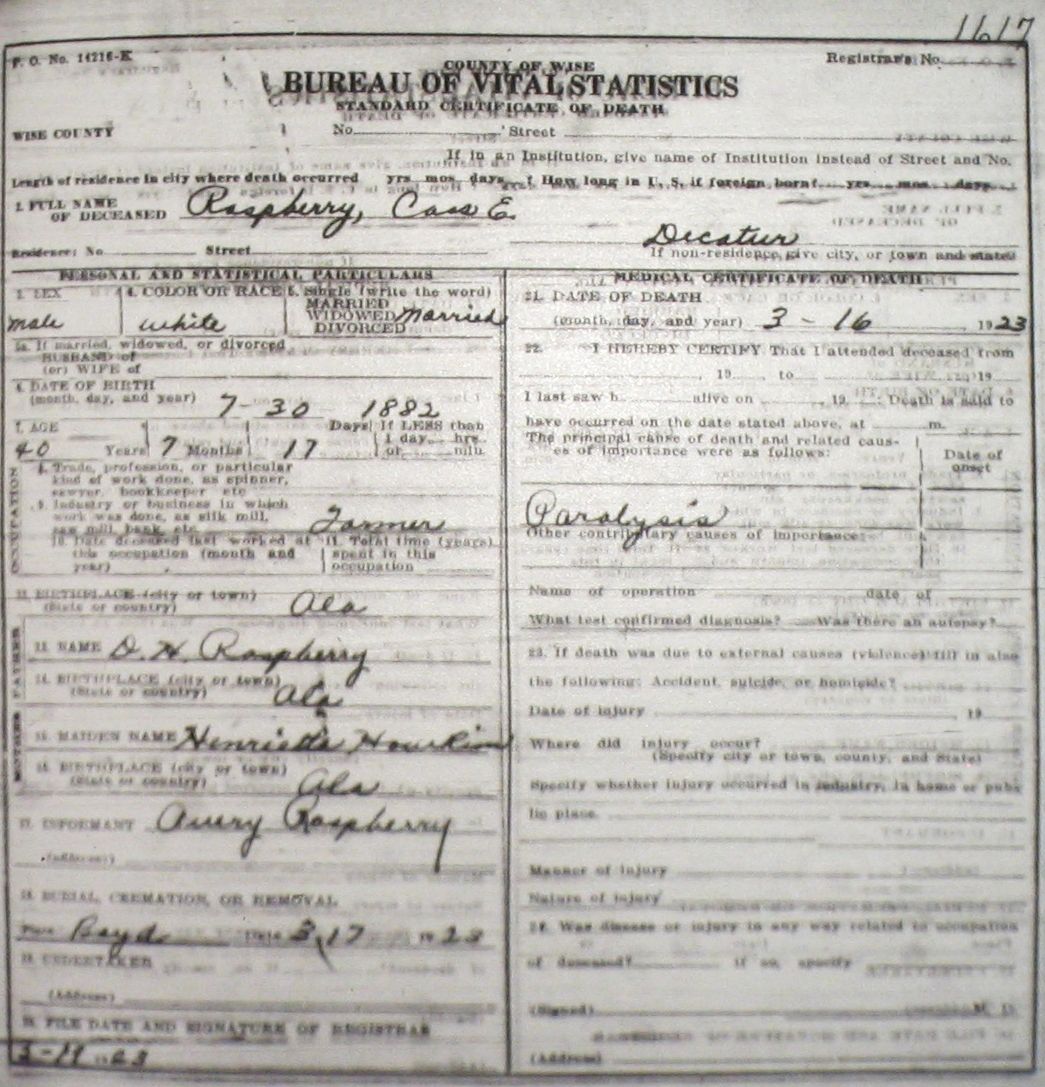 1617
F. O. No. 14216-K
COUNTY OF WISE
Registrar's No.
BUREAU OF VITAL STATISTICS
STANDARD CERTIFICATE OF DEATH
WISE COUNTY No. Street
If in an Institution, give name of Institution instead of Street and No.
Length of residence in city where death occurred yrs mos days ? How long in U. S. if foreign born? yrs mos days
1. FULL NAME
OF DECEASED Raspberry, Cass E.
Residence: No Street Decatur
If non-residence give city, or town and state
PERSONAL AND STATISTICAL PARTICULARS
3. SEX male
4. COLOR OR RACE white
5. Single (write the word)
MARRIED
WIDOWED Married
DIVORCED
5a. If married, widowed, or divorced
HUSBAND of
(or) WIFE of
6. DATE OF BIRTH
(month, day, and year) 7-30 1882
7. AGE
40 Years 7 Months 17 Days If LESS than
1 day, hrs.
or min.
OCCUPATION
8. Trade, profession, or particular
kind of work done, as spinner,
sawyer, bookkeeper etc
9. Industry or business in which
work was done, as silk mill,
saw mill, bank, etc Farmer
10. Date deceased last worked at
this occupation (month and
year)
11. Total time (years)
spent in this
occupation
12. BIRTHPLACE (city or town)
(State or country) Ala
FATHER
13. NAME D. H. Raspberry
14. BIRTHPLACE (city or town)
(State or country) Ala
MOTHER
15. MAIDEN NAME Henrietta
16. BIRTHPLACE (city or town)
(State or country) Ala
17. INFORMANT Avery Raspberry
(Address)
18. BURIAL, CREMATION, OR REMOVAL
Place Boyd Date 3 17 1923
19. UNDERTAKER
(Address)
20. FILE DATE AND SIGNATURE OF REGISTRAR
1923
MEDICAL CERTIFICATE OF DEATH
21. DATE OF DEATH
(month, day, and year) 3 - 16 , 1923
22. I HEREBY CERTIFY That I attended deceased from
, 19 , to 19
I last saw h alive on , 19 Death is said to
have occurred on the date stated above, at m.
The principal cause of death and related caus-
es of importance were as follows:
Date of
onset
Paralysis
Other contributary causes of importance:
Name of operation date of
What test confirmed diagnosis? Was there an autopsy?
23. If death was due to external causes (violence) fill in also
the following: Accident, suicide, or homicide?
Date of injury 19
Where did injury occur?
(Specify city or town, county, and State)
Specify whether injury occurred in industry, in home or pub-
lic place.
Manner of injury
Nature of injury
24. Was disease or injury in any way related to occupation
of deceased? if so, specify
(Signed) M. D.
(Address)